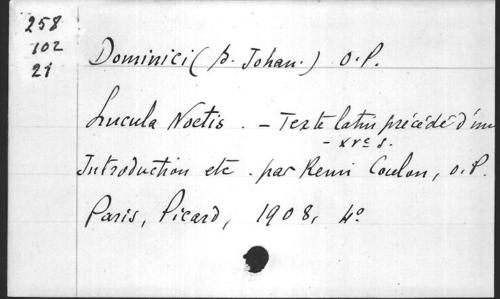 258
102
21
Dominici (b. Johan.) O.P.
Lucula Noctis. - Texte latin précédé d'une
- XVe s.
Introduction etc. par Remi Coulon, O.P.
Paris, Picard, 1908, 4o